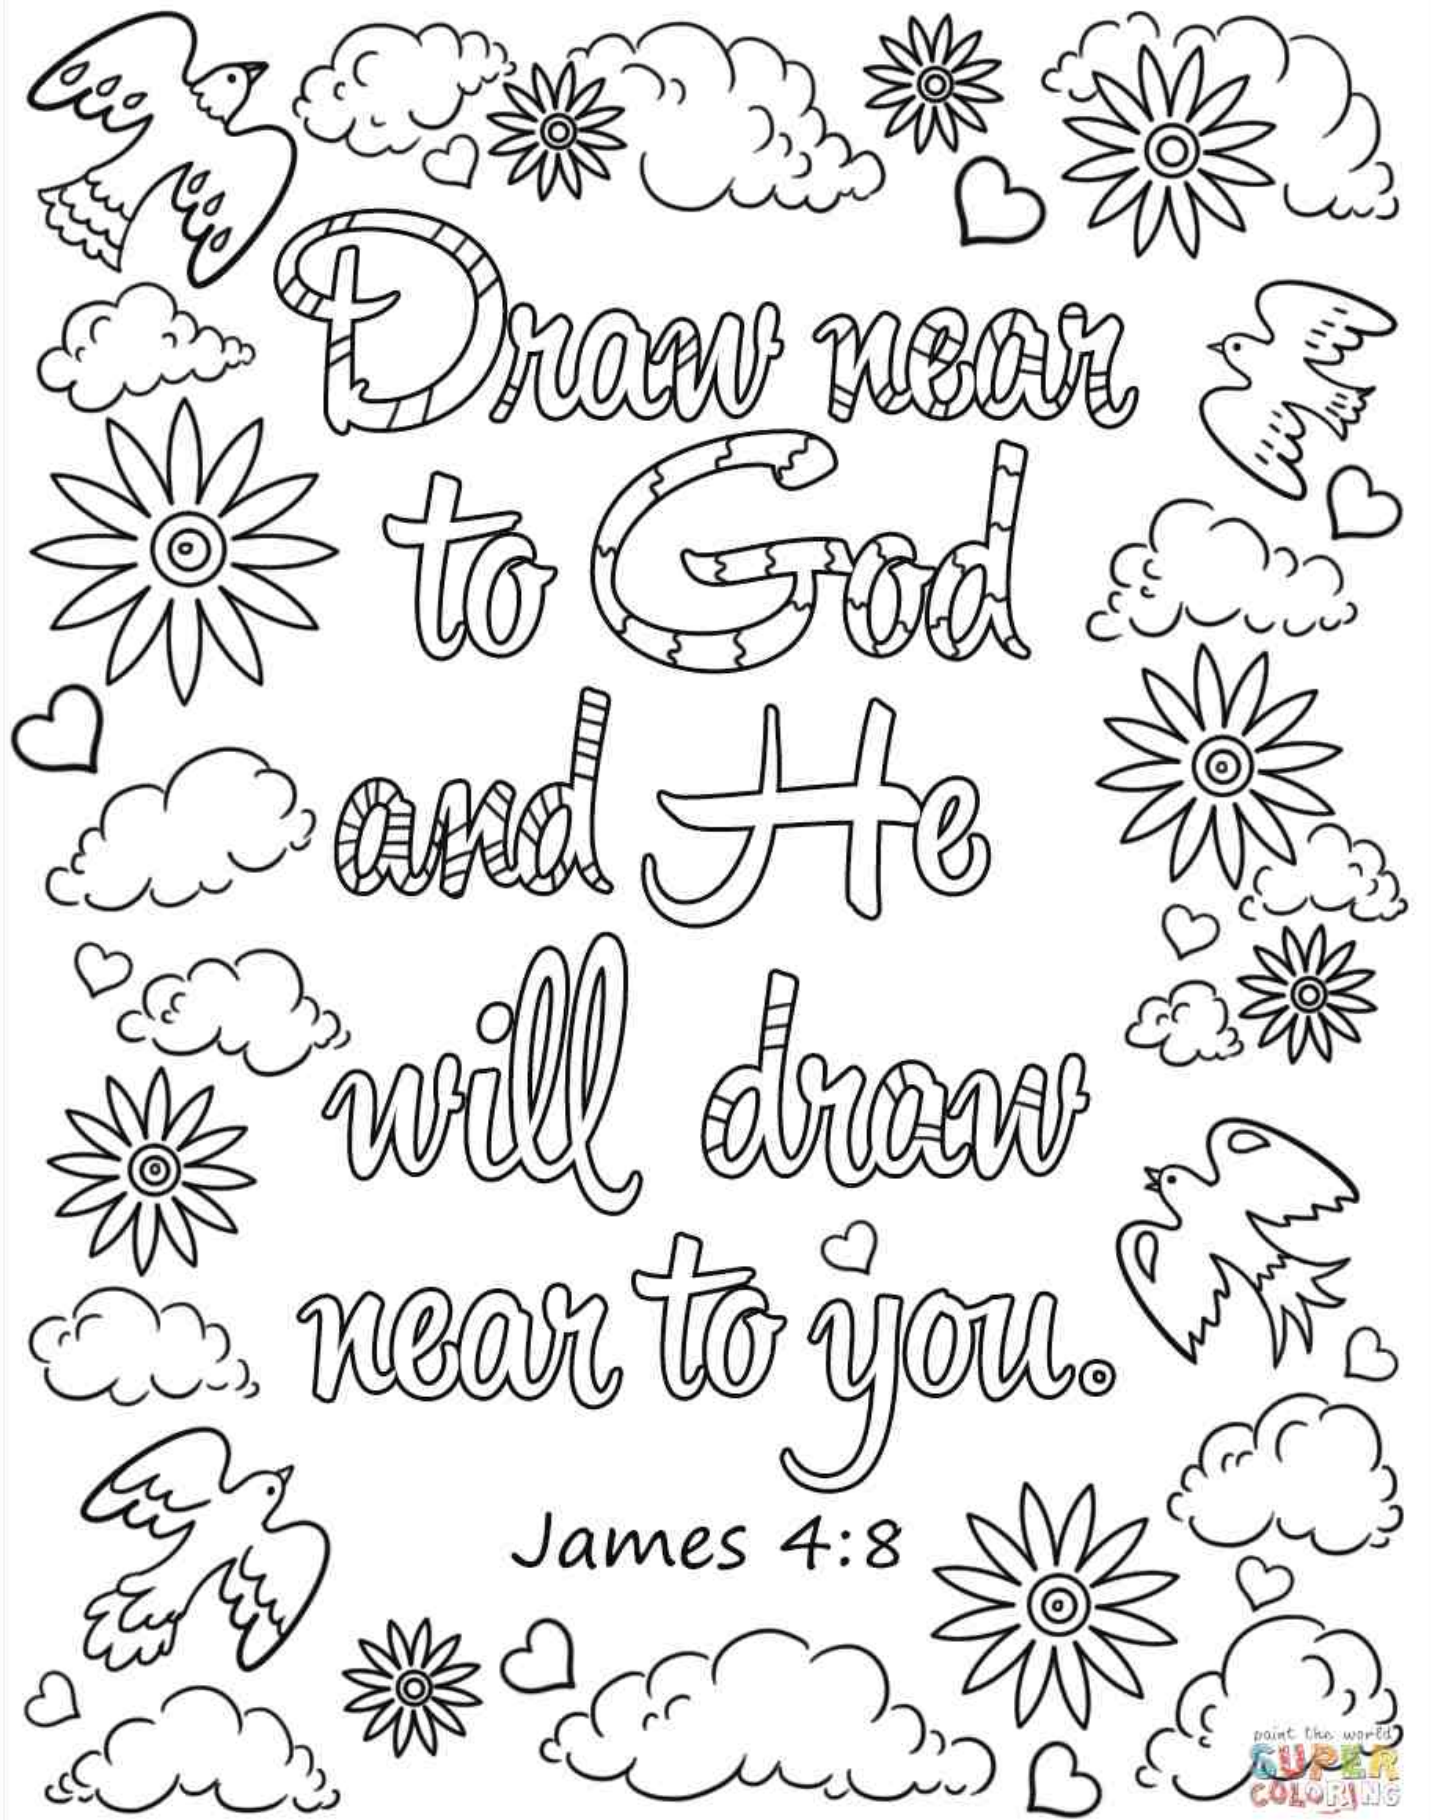 Draw near
to God
and He
will draw
near to you.
James 4:8
paint the world
SUPER
COLORING